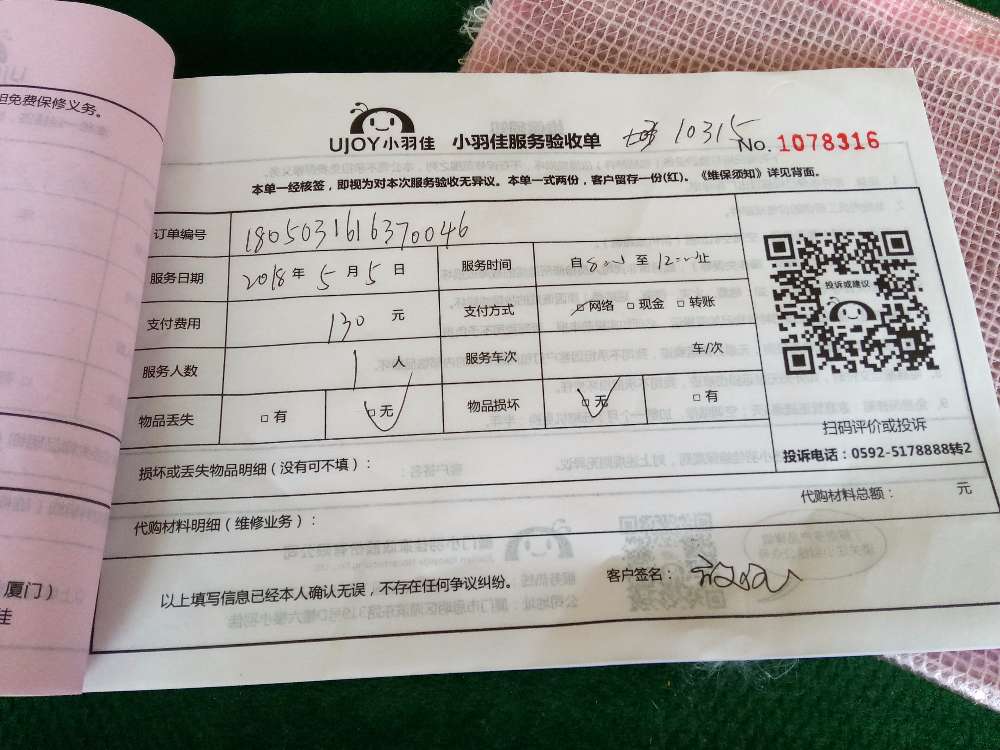 担免费保修义务。
UJOY小羽佳 小羽佳服务验收单 10315 No. 1078316
本单一经核签，即视为对本次服务验收无异议。本单一式两份，客户留存一份(红)。《维保须知》详见背面。
订单编号 1805031616370046
服务日期 2018年5月5日 服务时间 自8:00至12:00止
支付费用 130元 支付方式 □网络 □现金 □转账
服务人数 1人 服务车次 车/次
物品丢失 □有 □无 物品损坏 □无 □有
投诉或建议
扫码评价或投诉
投诉电话：0592-5178888转2
损坏或丢失物品明细（没有可不填）：
代购材料明细（维修业务）： 代购材料总额： 元
以上填写信息已经本人确认无误，不存在任何争议纠纷。 客户签名：
厦门）
佳